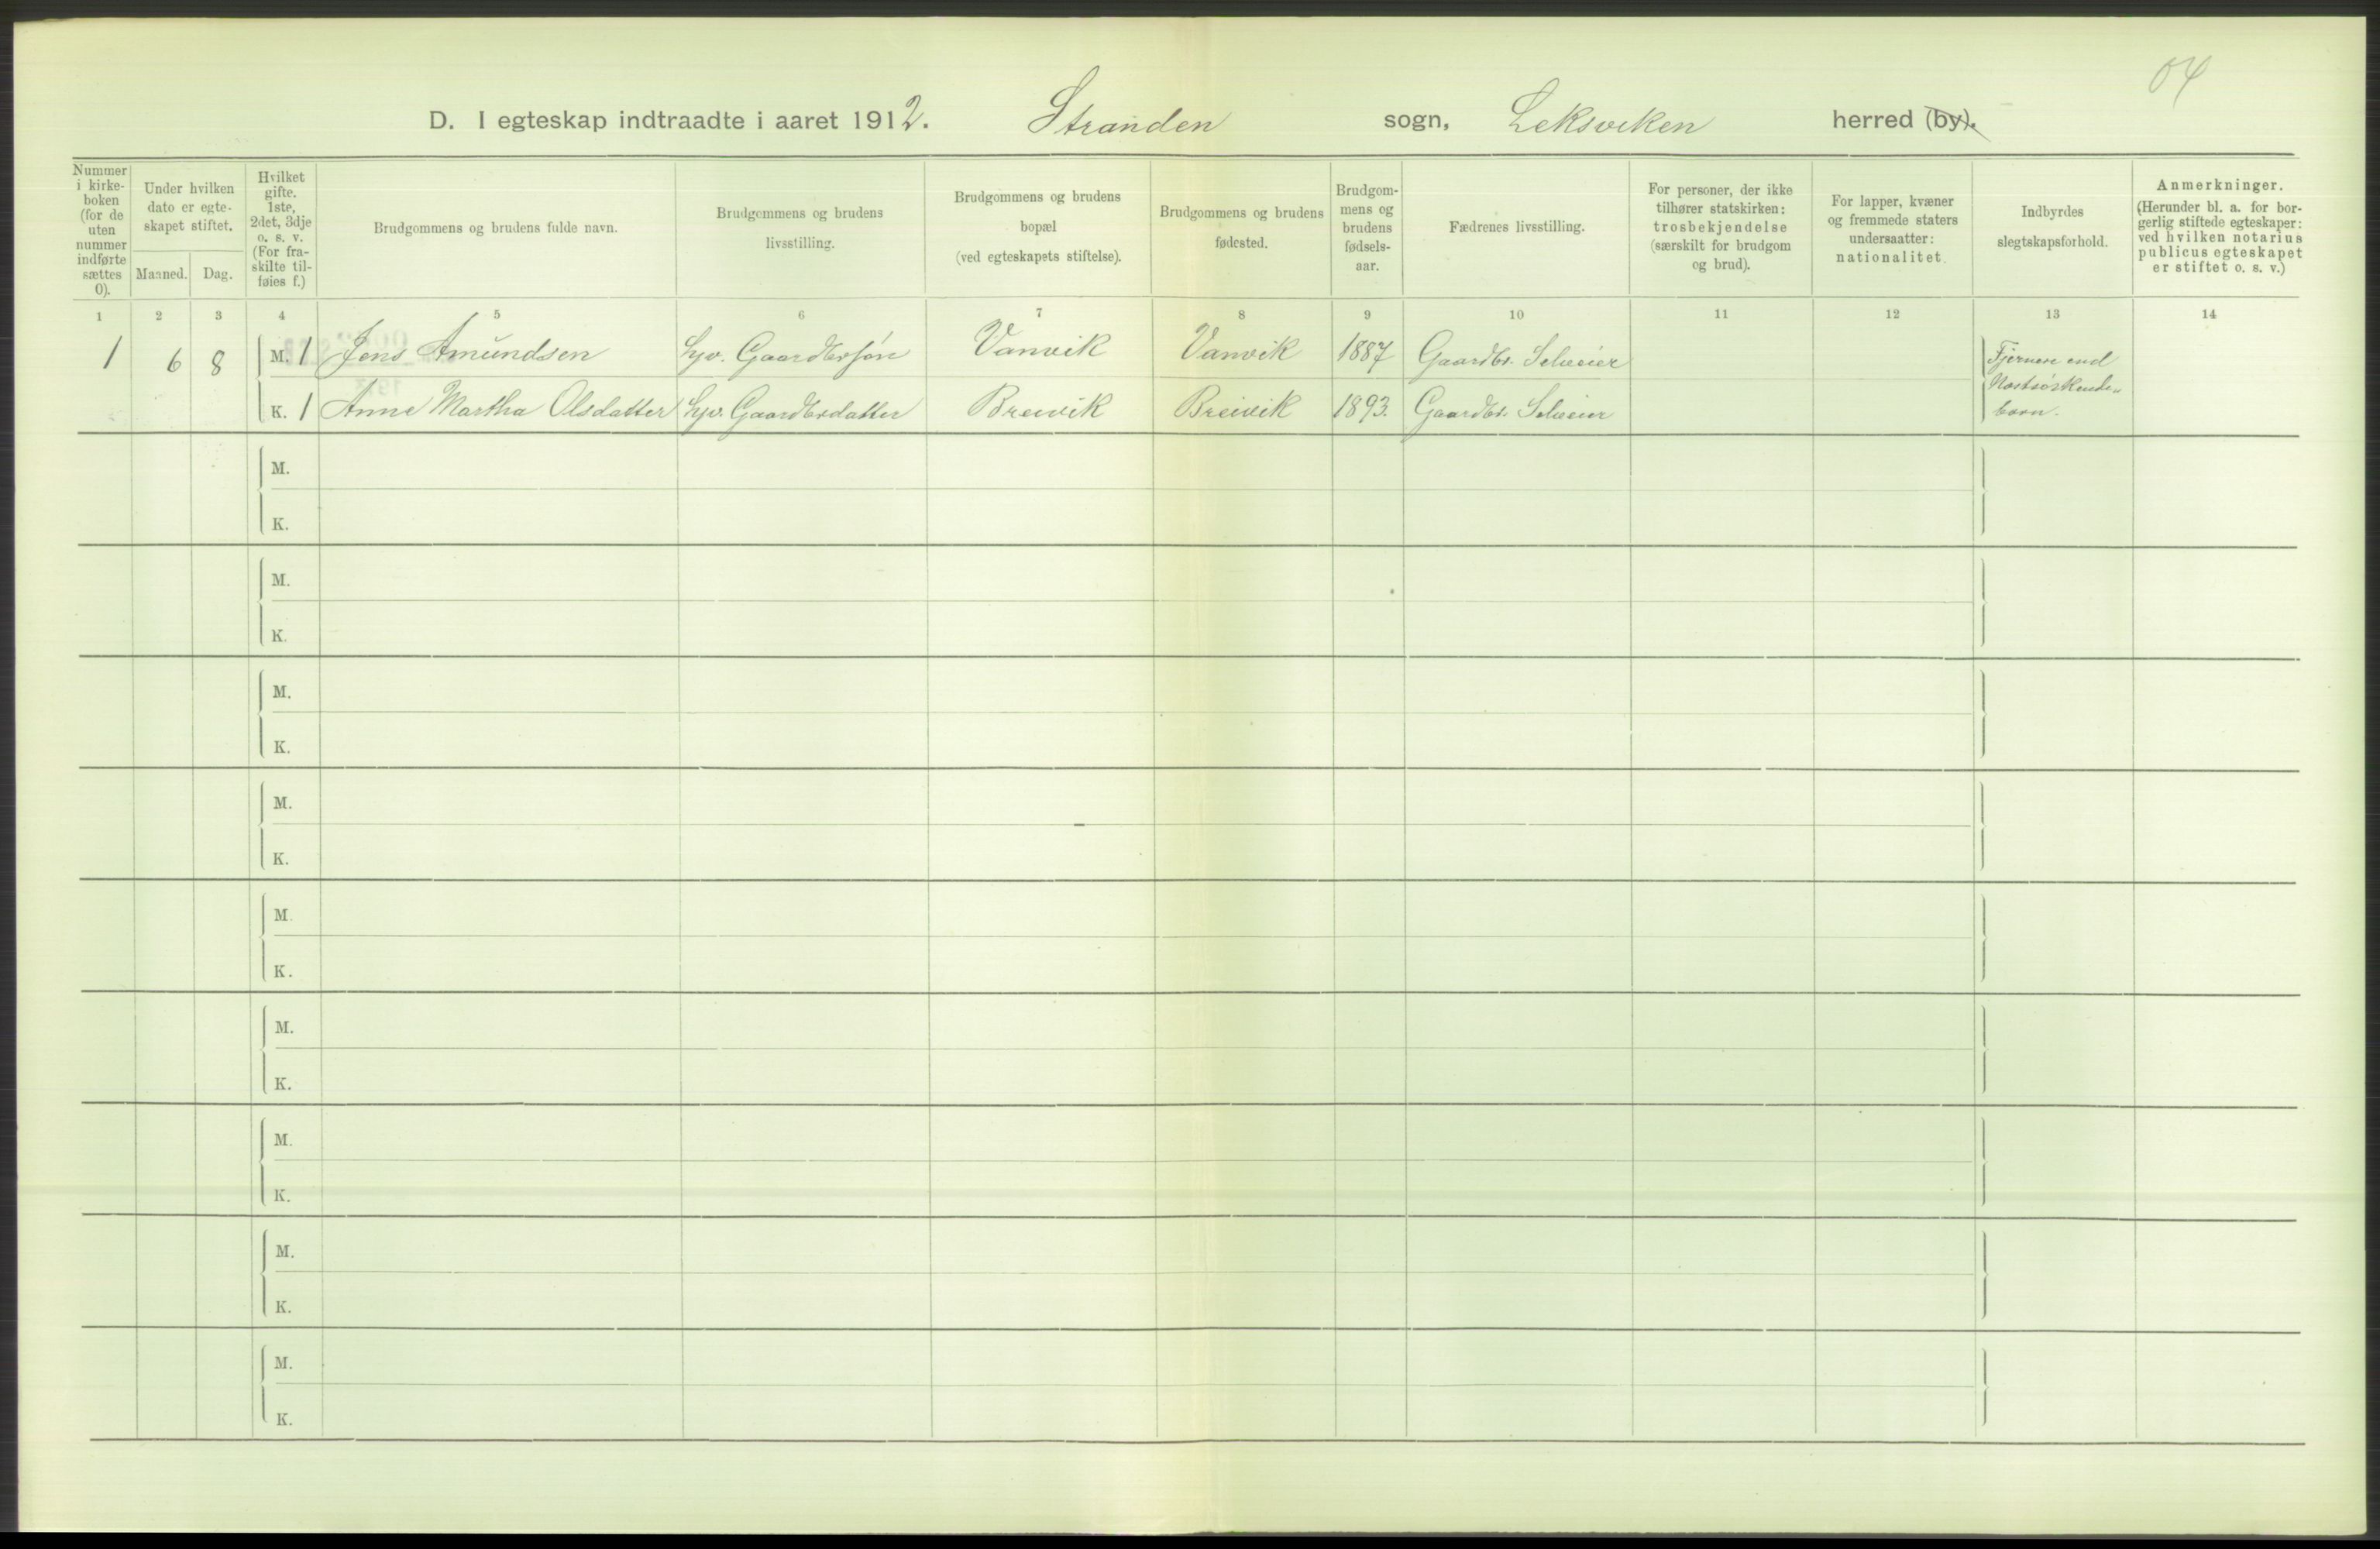 04
D. I egteskap indtraadte i aaret 1912. Stranden sogn, Leksviken herred (by).
Nummer i kirke- boken (for de uten nummer indførte sættes 0).
Under hvilken dato er egte- skapet stiftet.
Maaned. Dag.
Hvilket gifte. 1ste, 2det, 3dje o. s. v. (For fra- skilte til- føies f.)
Brudgommens og brudens fulde navn.
Brudgommens og brudens livsstilling.
Brudgommens og brudens bopæl (ved egteskapets stiftelse).
Brudgommens og brudens fødested.
Brudgom- mens og brudens fødsels- aar.
Fædrenes livsstilling.
For personer, der ikke tilhører statskirken: trosbekjendelse (særskilt for brudgom og brud).
For lapper, kvæner og fremmede staters undersaatter: nationalitet.
Indbyrdes slegtskapsforhold.
Anmerkninger. (Herunder bl. a. for bor- gerlig stiftede egteskaper: ved hvilken notarius publicus egteskapet er stiftet o. s. v.)
1 2 3 4 5 6 7 8 9 10 11 12 13 14
1 6 8 M. 1 Jens Amundsen Hjv. Gaardbrsøn Vanvik Vanvik 1887 Gaardbr. Selveier Fjernere end
Næstsøskende-
K. 1 Anne Martha Olsdatter Hjv. Gaardbrdatter Breivik Breivik 1893. Gaardbr. Selveier børn.
M.
K.
M.
K.
M.
K.
M.
K.
M.
K.
M.
K.
M.
K.
M.
K.
M.
K.